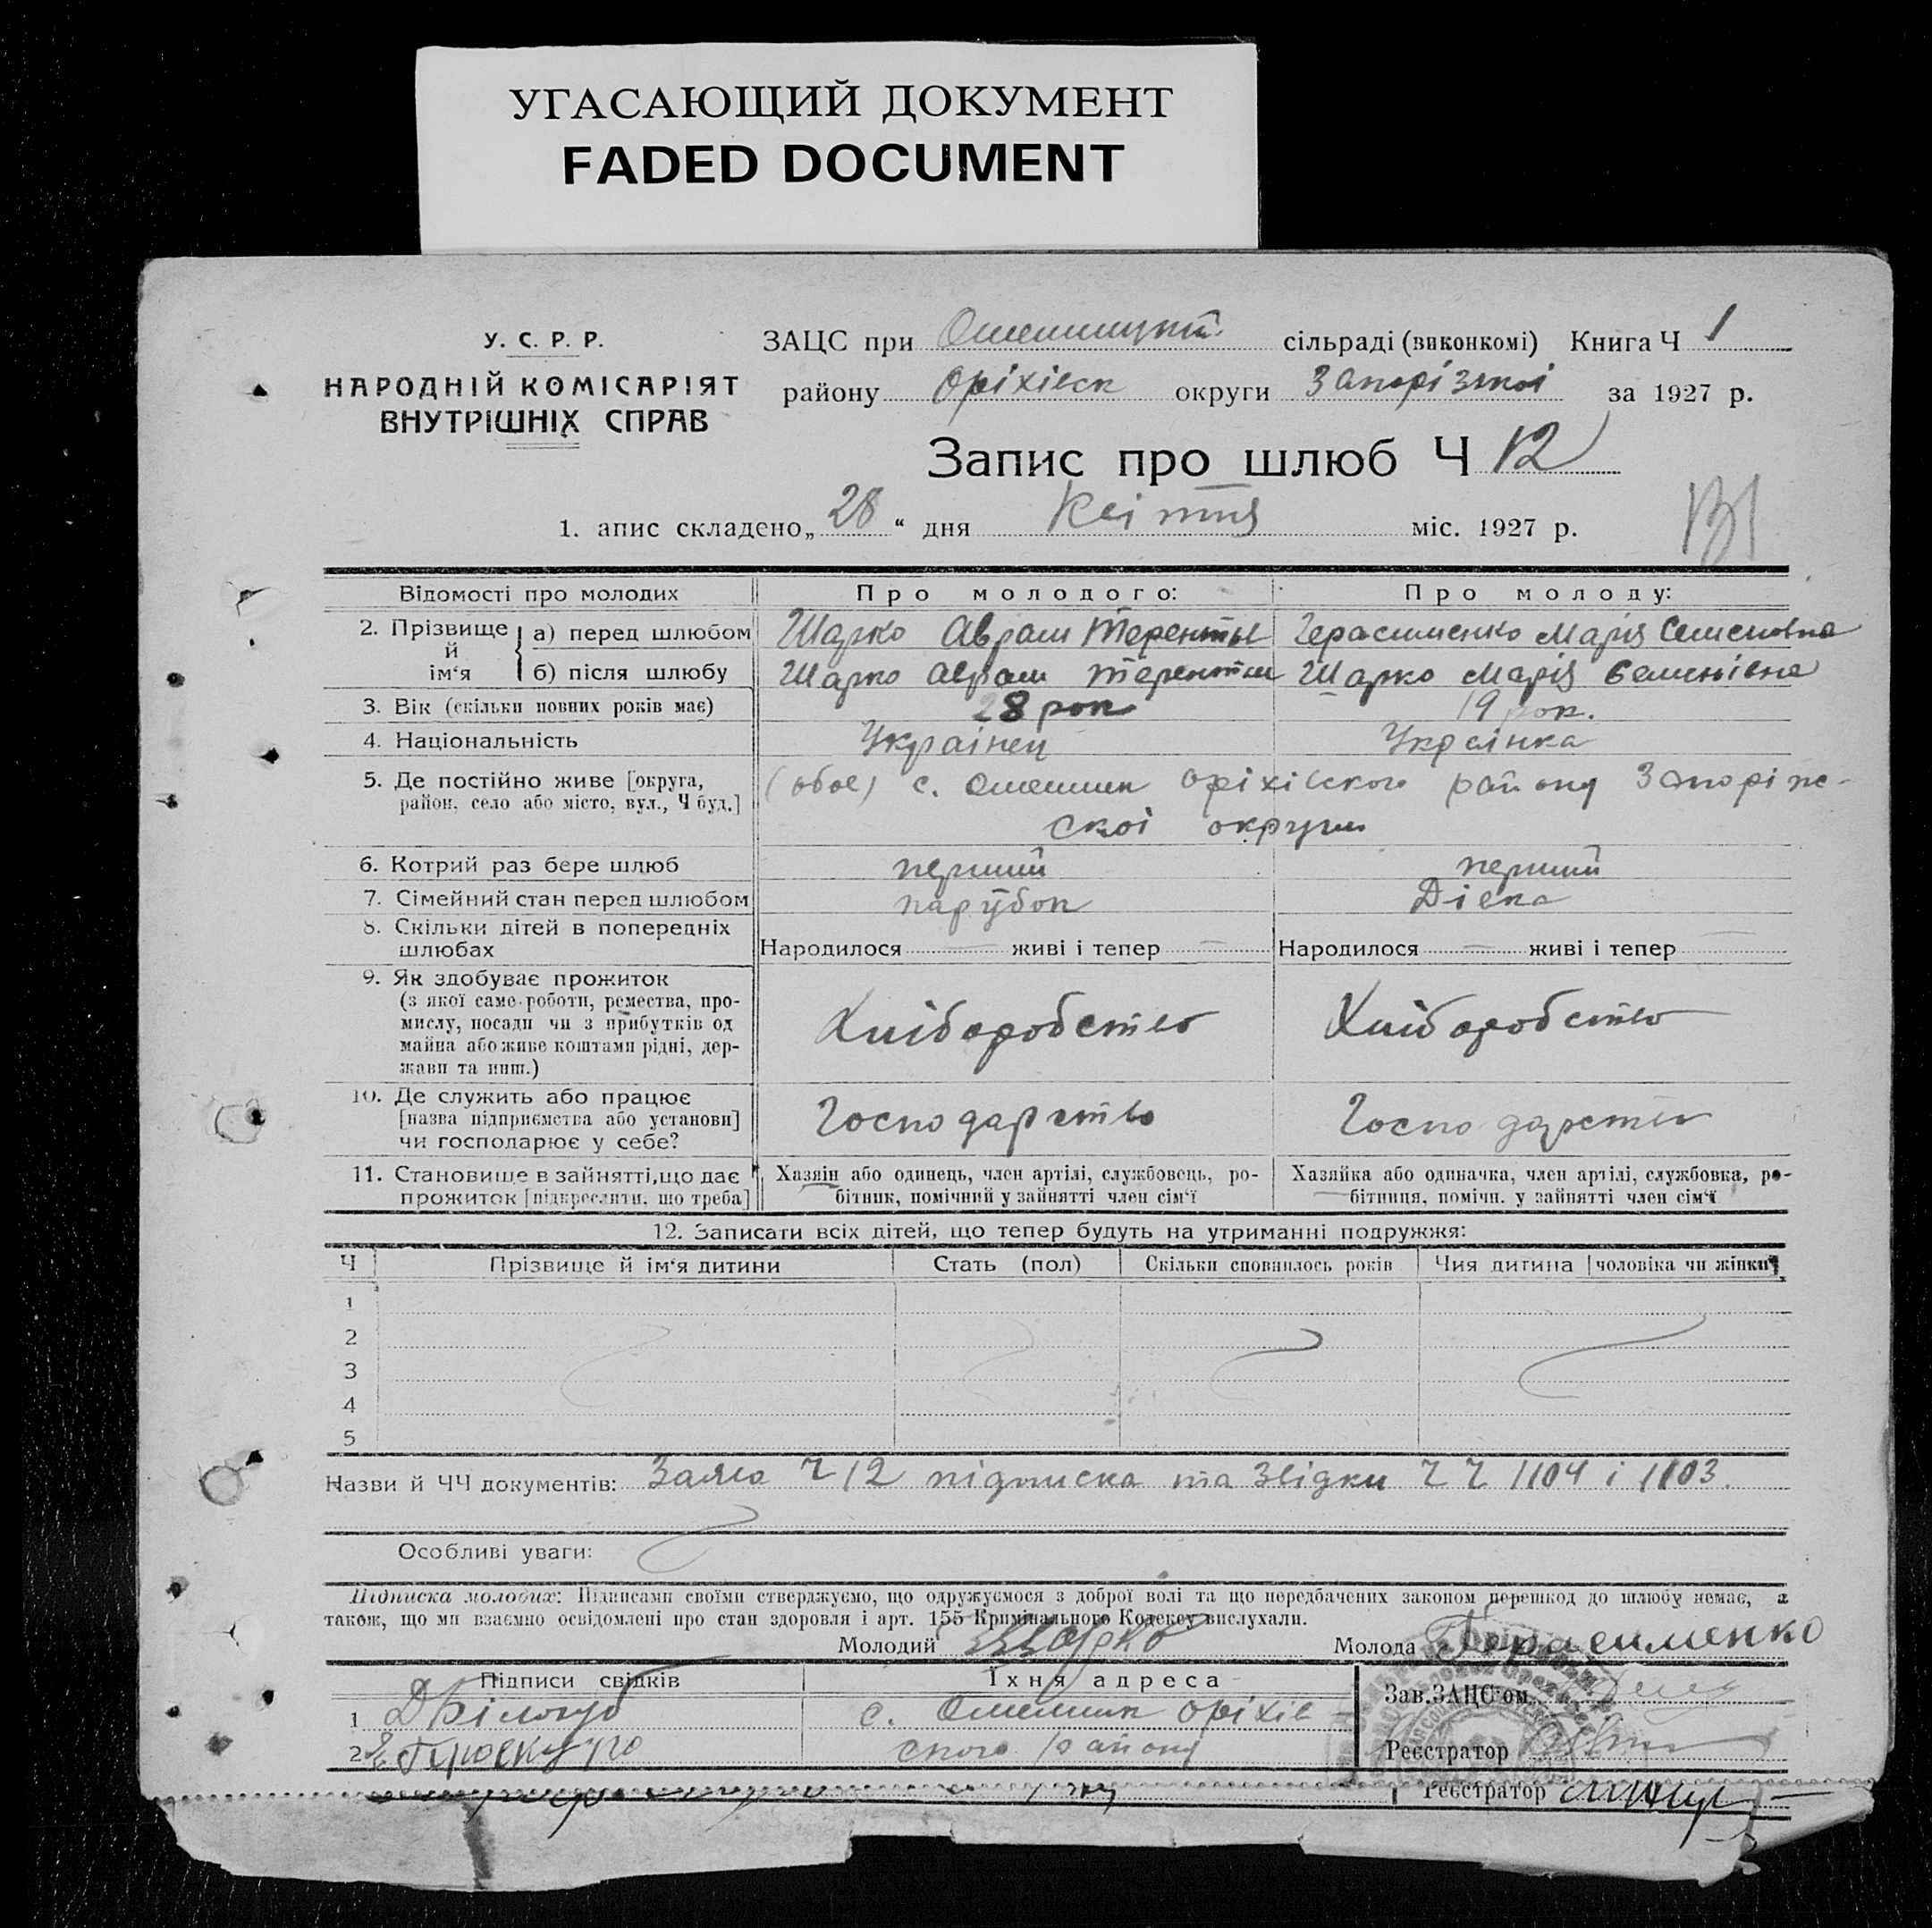 УГАСАЮЩИЙ ДОКУМЕНТ
FADED DOCUMENT
У. С. Р. Р.
НАРОДНІЙ КОМІСАРІЯТ
ВНУТРІШНІХ СПРАВ
ЗАЦС при сільраді (виконкомі) Книга Ч 1
району Оріхівск округи Запорізької за 1927 р.
Запис про шлюб Ч 12
1. апис складено „ 28 “ дня Квітня міс. 1927 р.
Відомості про молодих Про молодого: Про молоду:
2. Прізвище й ім‘я а) перед шлюбом Шарко Аврам Терентьє Герасименко Марія Семеновна
б) після шлюбу Шарко Аврам Шарко Марія Семенівна
3. Вік (скільки повних років має) 28 рок 19 рок.
4. Національність Українец Українка
5. Де постійно живе [округа, район, село або місто, вул., Ч буд.] (обоє) с. Омельник Оріхівского району Запоріж-
скої округи
6. Котрий раз бере шлюб перший перший
7. Сімейний стан перед шлюбом парубок Дівка
8. Скільки дітей в попередніх шлюбах Народилося — живі і тепер — Народилося — живі і тепер —
9. Як здобуває прожиток
(з якої саме роботи, ремества, про-
мислу, посади чи з прибутків од
майна або живе коштами рідні, дер-
жави та инш.)
Хліборобство Хліборобство
10. Де служить або працює
[назва підприємства або установи]
чи господарює у себе?
Господарство Господарство
11. Становище в зайнятті, що дає
прожиток [підкреслити, що треба]
Хазяїн або одинець, член артілі, службовець, ро-
бітник, помічний у зайнятті член сім‘ї
Хазяйка або одиначка, член артілі, службовка, ро-
бітниця, помічн. у зайнятті член сім‘ї
12. Записати всіх дітей, що тепер будуть на утриманні подружжя:
Ч Прізвище й ім‘я дитини Стать (пол) Скільки сповнилось років Чия дитина [чоловіка чи жінки]
1
2
3
4
5
Назви й ЧЧ документів: Заява Ч 12 підписка та Звідки ЧЧ 1104 і 1103.
Особливі уваги:
Підписка молодих: Підписами своїми стверджуємо, що одружуємося з доброї волі та що передбачених законом перешкод до шлюбу немає, а
також, що ми взаємно освідомлені про стан здоровля і арт. 155 Кримінального Кодексу вислухали.
Молодий Шарко Молода Герасименко
Підписи свідків Їхня адреса
1 с. Омельник Оріхів
2 ского району
Зав. ЗАЦС‘ом
Реєстратор
Реєстратор